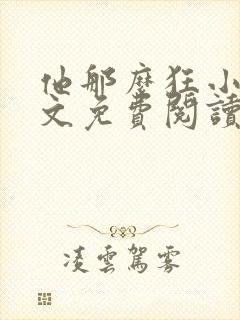 他那麼狂小
文免費閱讀
凌雲駕霧